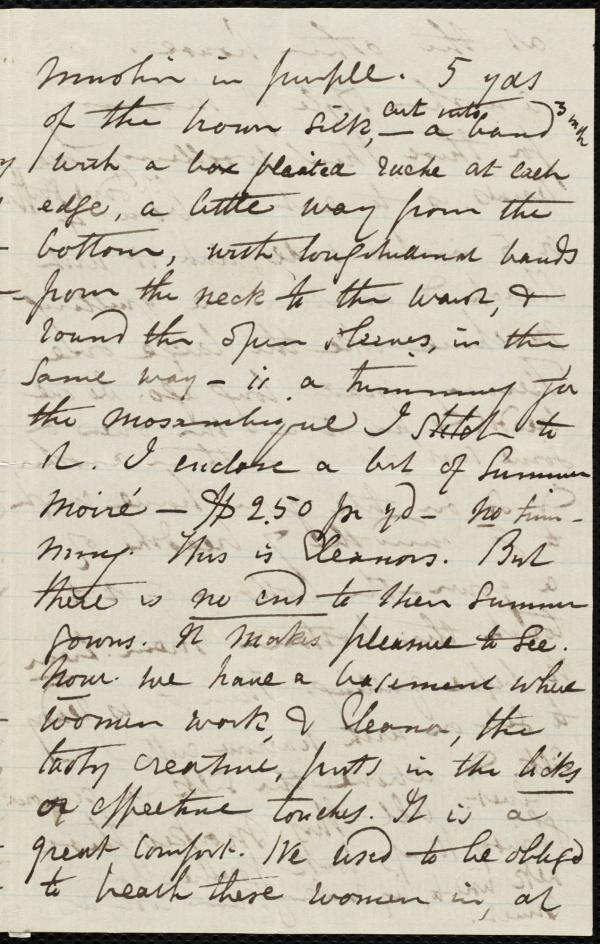 muslin in purple. 5 yds
of the brown silk, cut into — a band 3 inch
with a box plaited ruche at each
edge, a little way from the
bottom, with longitudinal bands
from the neck to the waist, &
round the open sleeves, in the
same way – is a trimming for
the mosambique I stitch to
it. I enclose a bit of Summer
Moiré – $2.50 pr yd – no trim-
ming. This is Eleanors. But
there is no end to then Summer
gowns. It makes pleasure to see.
Now we have a basement where
women work, & Eleanor, the
tasty creature, puts in the licks
or effective touches. It is a
great comfort. We used to be obliged
to these women in, at